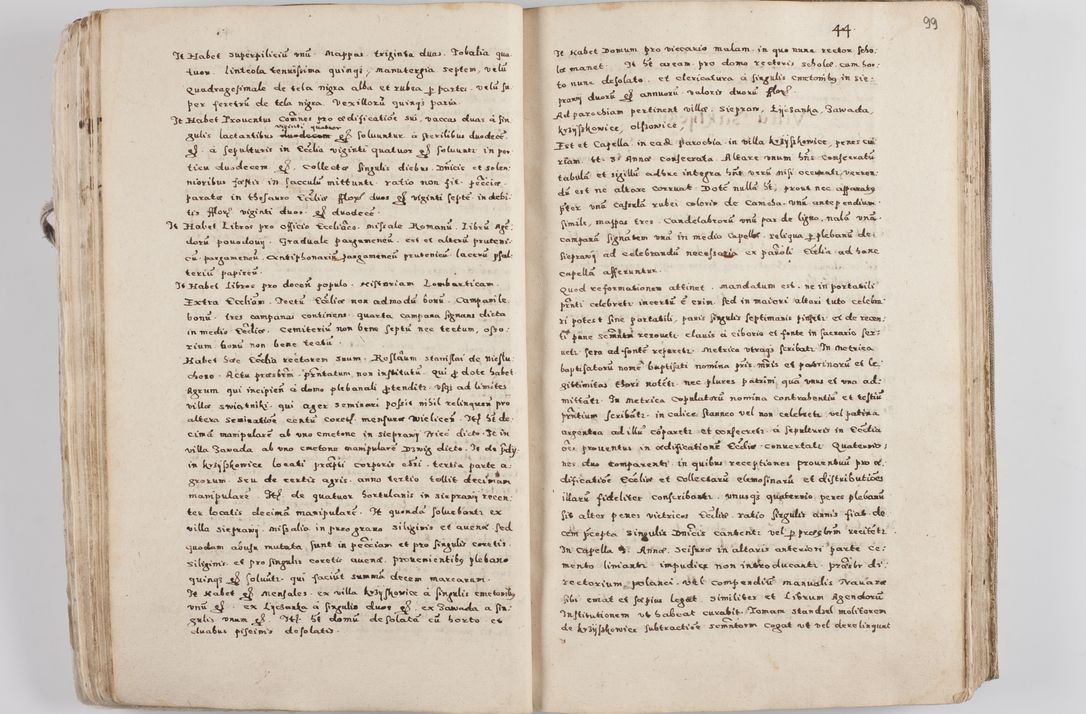 It Habet superpiliciũ vnũ Mappas triginta duas Tobalia qua
tuor linteola tenuissima quinqȝ, manutergia septem, velũ
Quadragesimale de tela nigra alba et rubea velũ su
per feretrũ de tela nigra Vexillorũ quinqȝ paria
It Habet Prouentus Com̃nes pro ædificatiõe sui, vaccas duas â sin
gulis lactantibus viginti quatuor soluuntur â sterilibus duodecẽ
â sepulturis in Eccl̃ia viginti quatuor soluunt in por
ticu duodecem Collectæ singulis diebus Dñicis et solen
nioribus festis in sacculũ mittuntr ratio non fit
parata in thesauro Eccl̃iæ duos viginti septẽ in debi
tis viginti duos duodecẽ
It Habet Libros pro Officio Eccl̃iaco missale Romanũ Librũ Agẽ
dorũ Graduale pargamenẽũ est et alterũ pruteni
cũ pargamenũ Antiphonariũ pargameneũ prutenicũ lacerũ psal
teriũ papireũ
It Habet Libros pro docen̄ populo Historiam Lombarticam
Extra Eccl̃iam Tectũ Eccl̃iæ non admodũ bonũ Campanile
bonũ tres campanas continens quarta campana signans dicta
in medio Eccl̃iæ Cemiteriũ non bene septũ nec tectum, osso
rium bonũ non bene tectũ
Habet hæc Eccl̃ia rectorem suum Stanislai de
Actu præsbr̃m prñtatum non institutũ qui dote habet
Agrum qui incipien̄ â domo plebanali ꝓtenditr vsqȝ ad limites
villæ swiatniki qui ager seminari possit nihil relinquen̄ pro
altera seminatiõe centũ mensuræ Wielicen̄ Itẽ ht de
cimã manipularẽ ab vno cmetone in siepranÿ dicto It in
villa Zawada ab vno cmetone manipularẽ dicto It de
in krzÿskowice locati corporis tertia parte a
grorum seu de certis agris anno tertio tollit decimam
manipularẽ It de quatuor hortulanis in siepranÿ recen
ter locatis decimã manipularẽ It quondã soluebantr ex
villa siepranÿ missalia in puro grano siliginis et auenæ sed
quodam abusu mutata sunt in pecũiam et pro singulis coretis
siliginis et pro singulis coretis auenæ prouenientibus plebano
quinqȝ soluũtr qui faciũt summã decem marcarum
It Habet Mensales ex villa krzÿskowice â singulis cmetonibus
vnũ ex Lÿczanka â singulis duos ex Zawada a sin
gulis vnum It ht domũ desolatã cũ horto et
duabus piscinis desolatis

44 99
It Habet Domum pro viccario malam in quo nunc rector scho
læ manet It ht aream pro domo rectoris scholæ cum hor
to nunc desolato et clericatura â singulis cmetonibus in sie
pranÿ duorũ annuorũ valoris duorũ
Ad parochiam pertinent villæ Siepraw, Lÿczanka, Zawada,
krzÿskowice, olssowice,
Est et Capella in eadẽ parochia in villa krzÿskowice, penes cu
riam tt S Annæ consecrata Altare vnum hñs consecratũ
tabulã et sigillũ adhuc integra hñs verũ nisi occurratr veren
dũ est ne altare corruat Dotẽ nullã ht, prout nec apparatũ
præter vnã casulã rubei coloris de Camcha vnũ antependium
simile, mappas tres Candelabrorũ vnũ par de ligno, nolã vnã
campanã signatem vnã in medio Capellæ reliqua ꝓ plebanũ de
siepranÿ ad celebrandũ necessaria ex paroli Eccl̃ia ad hanc
capellã afferuntur
Quod reformationem attinet mandatum est ne in portatili
prñti celebretr incertũ ẽ enim sed in maiori altari tuto celebra
ri potest sine portatili, panis singulis septimanis pinsetr et de recen
ti pane renouetr clauis â ciborio et fonte in sacrario ser
uetr sera ad fontẽ reparetr Metrica vtraqȝ scribatr In metrica
baptisatorũ nomẽ baptisati nomina pr̃is m̃ris et patrinorũ et le
gittimitas thori notẽtr nec plures patrini quã vnus et vna ad
mittãtr In metrica copulatorũ nomina contrahentiũ et testiũ
prñtium scribãtr in calice stanneo vel non celebretr vel patina
argentea ad illũ cõparetr et consecretr â sepulturis in Eccl̃ia
oẽs prouentus in ædificationẽ Eccl̃iæ conuertatr Quaternio
nes duo comparentr in quibus receptiones prouentuũ pro æ
dificatiõe Eccl̃iæ et collectarũ elemosinarũ et distributiões
illarũ fideliter conscribantr vnusqȝ quaternio penes plebanũ
sit alter penes vitricos Eccl̃iæ ratio singulis annis fiat de
cem singulis Dñicis cantentr vel præsbr̃m recitẽtr
In capella S Annæ scissuræ in altaris anteriori parte ce
mento liniantr impudicæ non introducantr di
rectorium polanci vel compendiũ manualis Nauaræ
sibi emat et sæpius legat similiter et Librum Agendorũ
Institutionem vt habeat curabit Tomam molitorem
de krzÿskowice subtractiõe cogat vt vel derelinquat